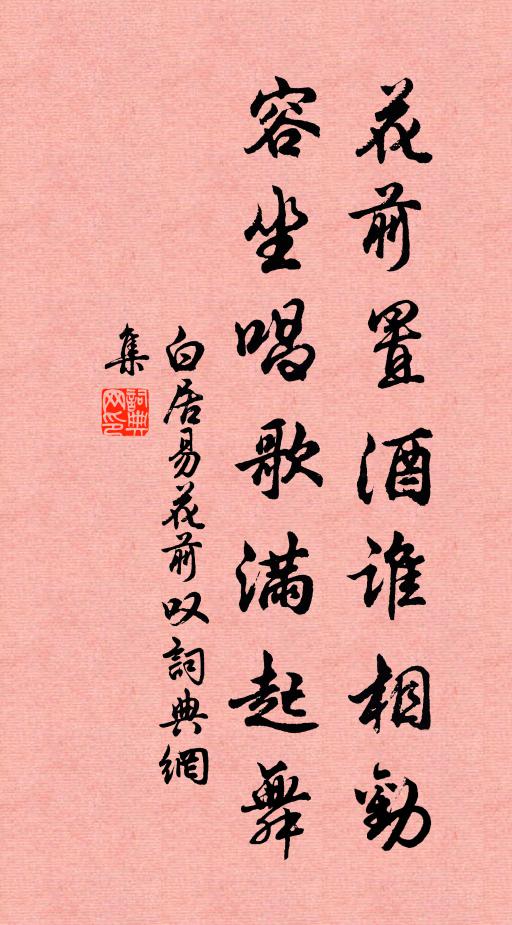 花前置酒谁相劝
容坐唱歌满起舞
白居易花前叹词典網
集
詞典网印